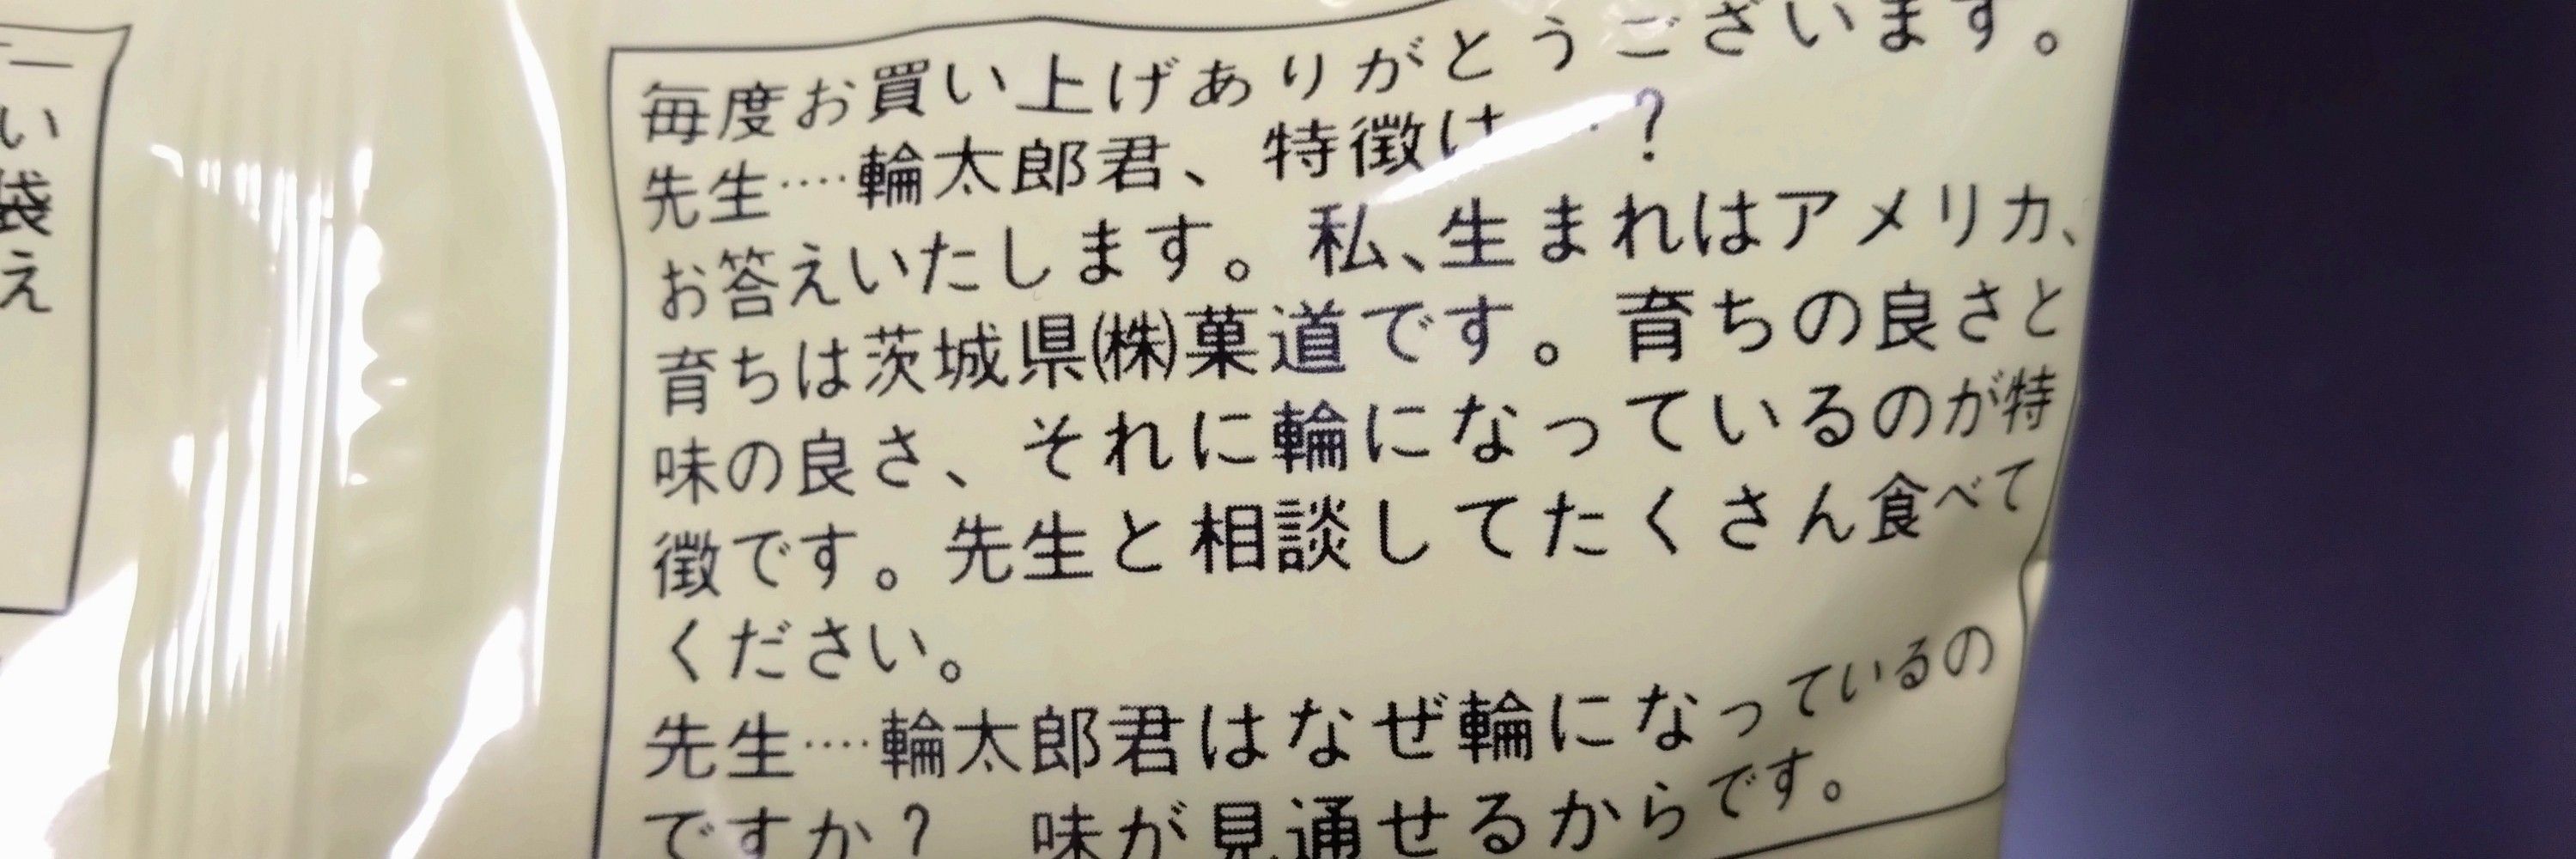 い
袋
え
毎度お買い上げありがとうございます。
先生‥‥輪太郎君、特徴は ‥?
お答えいたします。私、生まれはアメリカ、
育ちは茨城県㈱菓道です。育ちの良さと
味の良さ、それに輪になっているのが特
徴です。先生と相談してたくさん食べて
ください。
先生‥‥輪太郎君はなぜ輪になっているの
ですか? 味が見通せるからです。